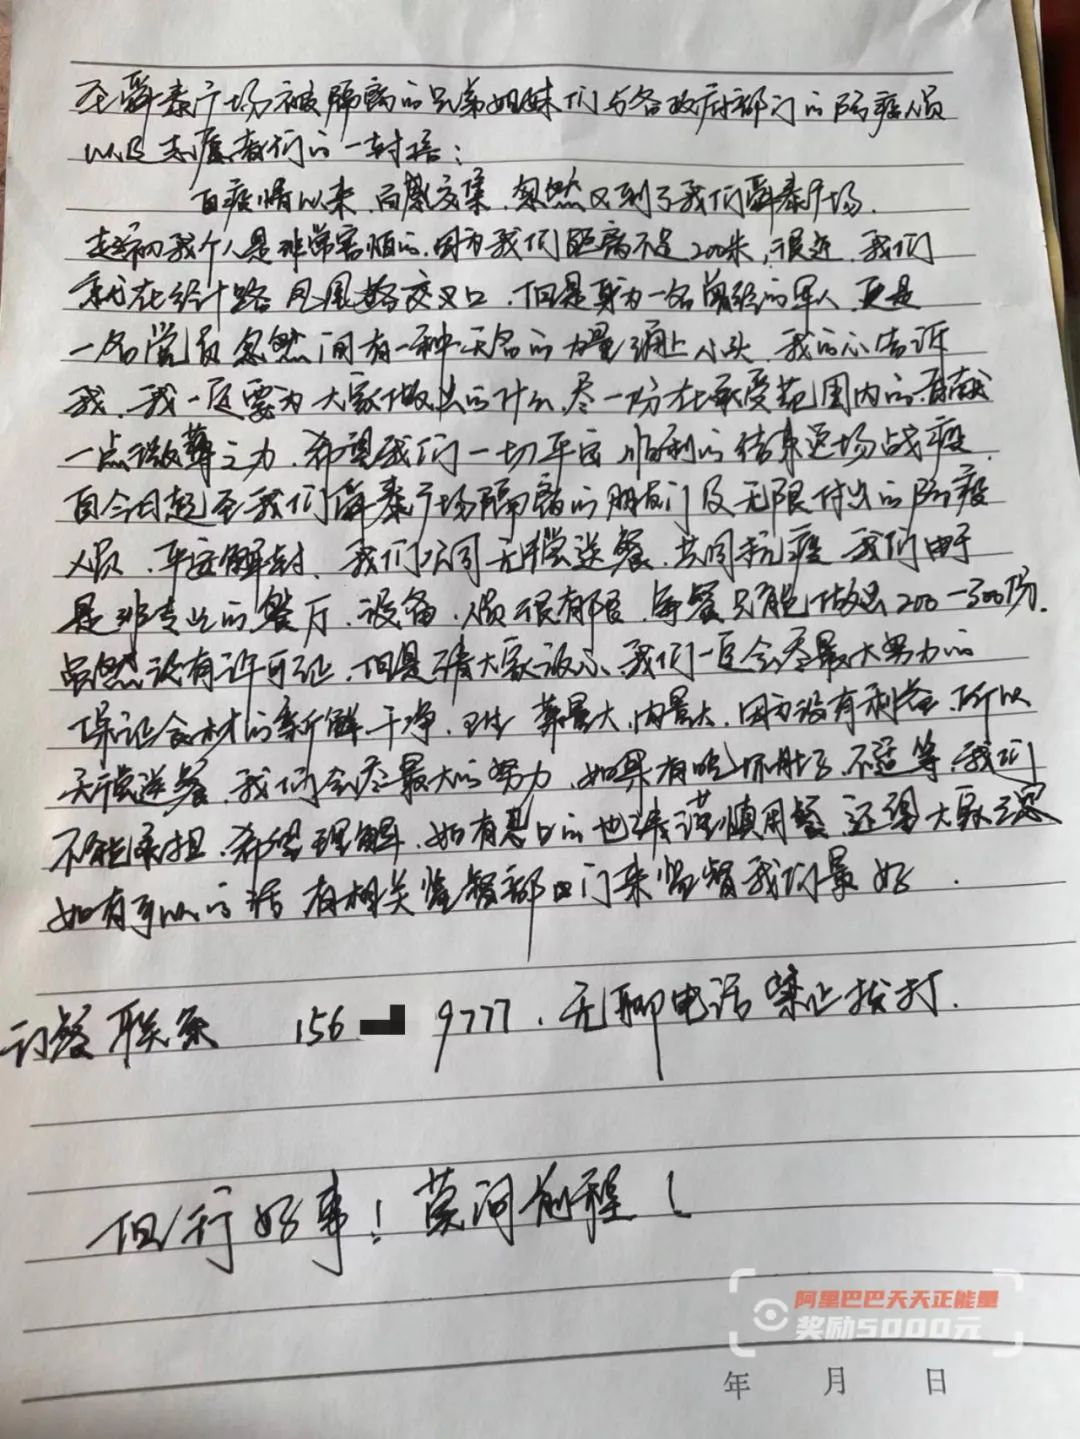 至舜泰广场被隔离的兄弟姐妹们与各政府部门的防疫人员
以及志愿者们的一封信：
自疫情以来，百感交集，忽然又到了我们舜泰广场.
起初我个人是非常害怕的，因为我们距离不足200米，很近，我们
就在经十路凤凰路交叉口，但是身为一名曾经的军人，更是
一名党员忽然间有一种无名的力量涌上心头，我的心告诉
我，我一定要为大家做出的什么，尽一份在承受范围内的，贡献
一点微薄之力，希望我们一切平安顺利的结束这场战疫.
自今日起至我们舜泰广场隔离的朋友们及无限付出的防疫
人员，平安解封，我们公司无偿送餐，共同抗疫，我们由于
是非专业的餐厅，设备，人员很有限，每餐只能做出200-300份.
虽然没有许可证，但是请大家放心，我们一定会尽最大努力的
保证食材的新鲜干净，卫生 菜量大，肉量大，因为没有利益，所以
无偿送餐，我们会尽最大的努力，如果有吃坏肚子，不适等，我们
不能承担，希望理解，如有忌口的也请谨慎用餐，还望大家注意
如有可以的话 有相关监督部门来监督我们最好.
订餐联系 156 9777，无聊电话禁止拨打.
但行好事！莫问前程！
阿里巴巴天天正能量
奖励5000元
年 月 日